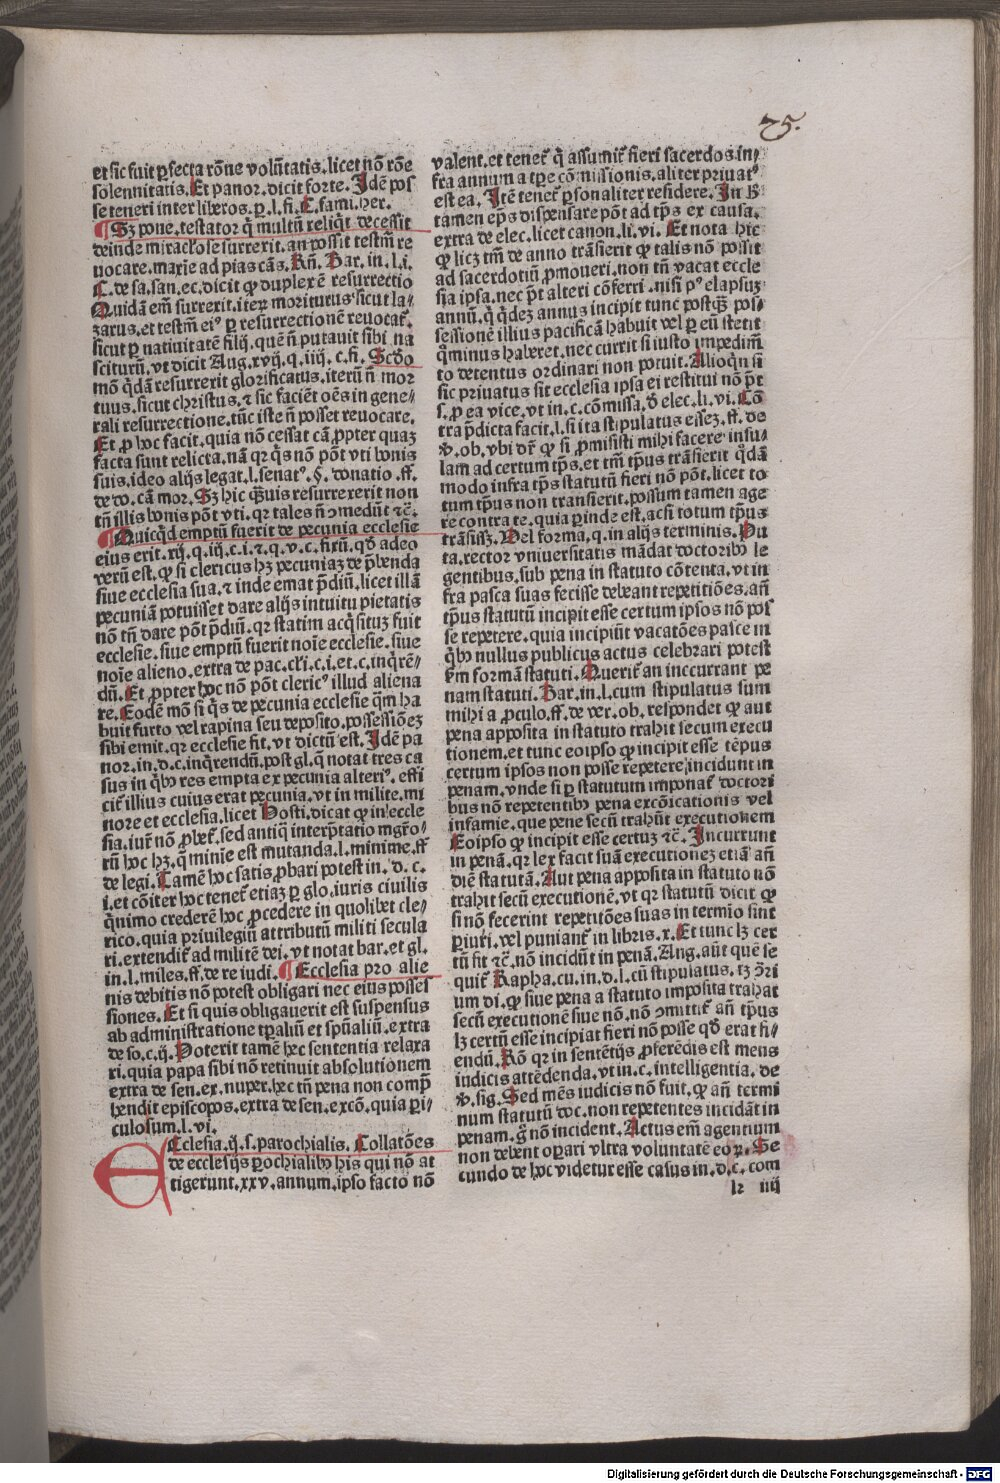 75.
et sic fuit ꝑfecta rōne volūtatis. licet nō rōe
solennitatis. Et panor. dicit forte. Idē pos
se teneri inter liberos. ꝑ. l. fi. C. fami. her.
¶ Sꝫ pone. testator q̄ multū reliq̇t decessit
deinde miraclose surrexit. an possit testm̄ re
uocare. maxīe ad pias cās. Rn̄. Bar. in. l. i.
C. de sa. san. ec. dicit ꝙ duplex ē resurrectio
Quidā em̄ surrexit. iteꝝ moriturus sicut la-
zarus. et testm̄ eiꝰ ꝑ resurrectionē reuocat᷑.
sicut ꝑ natiuitatē filij. quē n̄ putauit sibi na
sciturū. vt dicit Aug. xvij. q. iiij. c. fi. Scd̄o
mō q̇dā resurrexit glorificatus. iterū n̄ mor
tuus. sicut christus. ⁊ sic faciēt oēs in gene-
rali resurrectione. tūc iste n̄ posset reuocare.
Et ꝓ hoc facit. quia nō cessat cā ꝓpter quaꝫ
facta sunt relicta. nā qꝛ q̇s nō pōt vti bonis
suis. ideo alijs legat. l. senatꝰ. §. donatio. ff.
de do. cā mor. Sꝫ hic q̄uis resurrexerit non
tn̄ illis bonis pōt vti. qꝛ tales n̄ ↄmedūt ⁊c̄.
¶ Quicq̇d emptū fuerit de pecunia ecclesie
eius erit. xij. q. iij. c. i. ⁊. q. v. c. fixū. qd̄ adeo
verū est. ꝙ si clericus hꝫ pecuniaꝫ de p̄benda
siue ecclesia sua. ⁊ inde emat p̄diū. licet illā
pecuniā potuisset dare alijs intuitu pietatis
nō tn̄ dare pōt p̄diū. qꝛ statim acq̇situꝫ fuit
ecclesie. siue emptū fuerit noīe ecclesie. siue
noīe alieno. extra de pac. cl̄i. c. i. et. c. inq̇rē-
dū. Et ꝓpter hoc nō pōt clericꝰ illud aliena
re. Eodē mō si q̇s de pecunia ecclesie q̄m ha
buit furto vel rapina seu deposito. possessiōeꝫ
sibi emit. qꝛ ecclesie fit. vt dictū est. Idē pa
nor. in. d. c. inq̇rendū. post gl. q̄ notat tres ca
sus in q̇bꝰ res empta ex pecunia alteriꝰ. effi
cit᷑ illius cuius erat pecunia. vt in milite. mi
nore et ecclesia. licet Hosti. dicat ꝙ in eccle
sia. iur̄ nō ꝓbet᷑. sed antiq̄ interp̄tatio mgr̄o-
rū hoc hꝫ. q̄ minīe est mutanda. l. minime. ff
de legi. Tamē hoc satis ꝓbari potest in. d. c.
i. et cōiter hoc tenet᷑ etiaꝫ ꝑ glo. iuris ciuilis
q̇nimo crederē hoc ꝓcedere in quolibet cle-
rico. quia priuilegiū attributū militi secula
ri. extendit᷑ ad militē dei. vt notat bar. et gl.
in. l. miles. ff. de re iudi. ¶ Ecclesia pro alie
nis debitis nō potest obligari nec eius posses
siones. Et si quis obligauerit est suspensus
ab administratione tpaliū et spūaliū. extra
de so. c. ij. Poterit tamē hec sententia relaxa
ri. quia papa sibi nō retinuit absolutionem
extra de sen. ex. nuper. hec tn̄ pena non comp̄
hendit episcopos. extra de sen. excō. quia ꝑi-
culosum. l. vi.
ECclesia. ij. s. parochialis. Collatōes
de ecclesijs ꝑochialibꝰ his qui nō at
tigerunt. xxv. annum. ipso facto nō
valent. et tenet᷑ q̇ assumit᷑ fieri sacerdos. in-
fra annum a tpe cōmissionis. aliter priuatꝰ
est ea. Itē tenet᷑ ꝑsonaliter residere. In H
tamen ep̄s dispensare pōt ad tp̄s ex causa.
extra de elec. licet canon. li. vi. Et nota hic
ꝙ licꝫ tm̄ de anno trāsierit ꝙ talis nō possit
ad sacerdotiū ꝓmoueri. non tn̄ vacat eccle
sia ipsa. nec p̄t alteri cōferri. nisi pꝰ elapsuꝫ
annū. q̇ q̇deꝫ annus incipit tunc postq̄ꝫ pos-
sessionē illius pacificā habuit vel ꝑ eū stetit
q̄minus haberet. nec currit si iusto impedim̄
to detentus ordinari non potuit. Alioq̇n si
sic priuatus sit ecclesia ipsa ei restitui nō p̄t
s. ꝓ ea vice. vt in. c. cōmissa. d̄ elec. li. vi. Cō
tra p̄dicta facit. l. si ita stipulatus esseꝫ. ff. de
v̄. ob. vbi dr̄ ꝙ si ꝓmisisti mihi facere insu-
lam ad certum tp̄s. et tm̄ tp̄us trāsierit q̇dā
modo infra tp̄s statutū fieri nō pōt. licet to
tum tp̄us non transierit. possum tamen age
re contra te. quia ꝑinde est. acsi totum tp̄us
trāsisꝫ. Vel forma. q. in alijs terminis. Pu
ta. rector vniuersitatis mādat doctoribꝰ le
gentibus. sub pena in statuto cōtenta. vt in
fra pasca suas fecisse debeant repetitiōes. an̄
tp̄us statutū incipit esse certum ipsos nō pos
se repetere. quia incipiūt vacatōes pasce in
q̇bꝰ nullus publicus actus celebrari potest
ẜm formā statuti. Querit᷑ an inccurrant pe
nam statuti. Bar. in. l. cum stipulatus sum
mihi a ꝓculo. ff. de ver. ob. respondet ꝙ aut
pena apposita in statuto trahit secum execu
tionem. et tunc eoipso ꝙ incipit esse tēpus
certum ipsos non posse repetere incidunt in
penam. vnde si ꝑ statutum imponat᷑ doctori
bus nō repetentibꝰ pena excōicationis vel
infamie. que pene secū trahūt executionem
Eoipso ꝙ incipit esse certuꝫ ⁊c̄. Incurrunt
in penā. qꝛ lex facit suā executioneꝫ etiā an̄
diē statutā. Aut pena apposita in statuto nō
trahit secū executionē. vt qꝛ statutū dicit ꝙ
si nō fecerint repetitōes suas in termīo sint
ꝑiuri. vel puniant᷑ in libris. x. Et tunc lꝫ cer
tū sit ⁊c̄. nō incidūt in penā. Ang. aūt que se
quit᷑ Rapha. cu. in. d. l. cū stipulatus. tꝫ ↄ̄ri
um di. ꝙ siue pena a statuto imposita trahat
secū executionē siue nō. nō ↄmittit᷑ an̄ tp̄us
lꝫ certū esse incipiat fieri nō posse qd̄ erat fi-
endū. Rō qꝛ in sentētijs ꝓferēdis est mens
iudicis attēdenda. vt in. c. intelligentia. de
v̄. sig. Sed mēs iudicis nō fuit. ꝙ an̄ termi
num statutū doc. non repetentes incidāt in
penam. g̊ nō incident. Actus em̄ agentium
non debent oꝑari vltra voluntatē eoꝝ. Se
cundo de hoc videtur esse casus in. d. c. com
h iiij
Digitalisierung gefördert durch die Deutsche Forschungsgemeinschaft - DFG